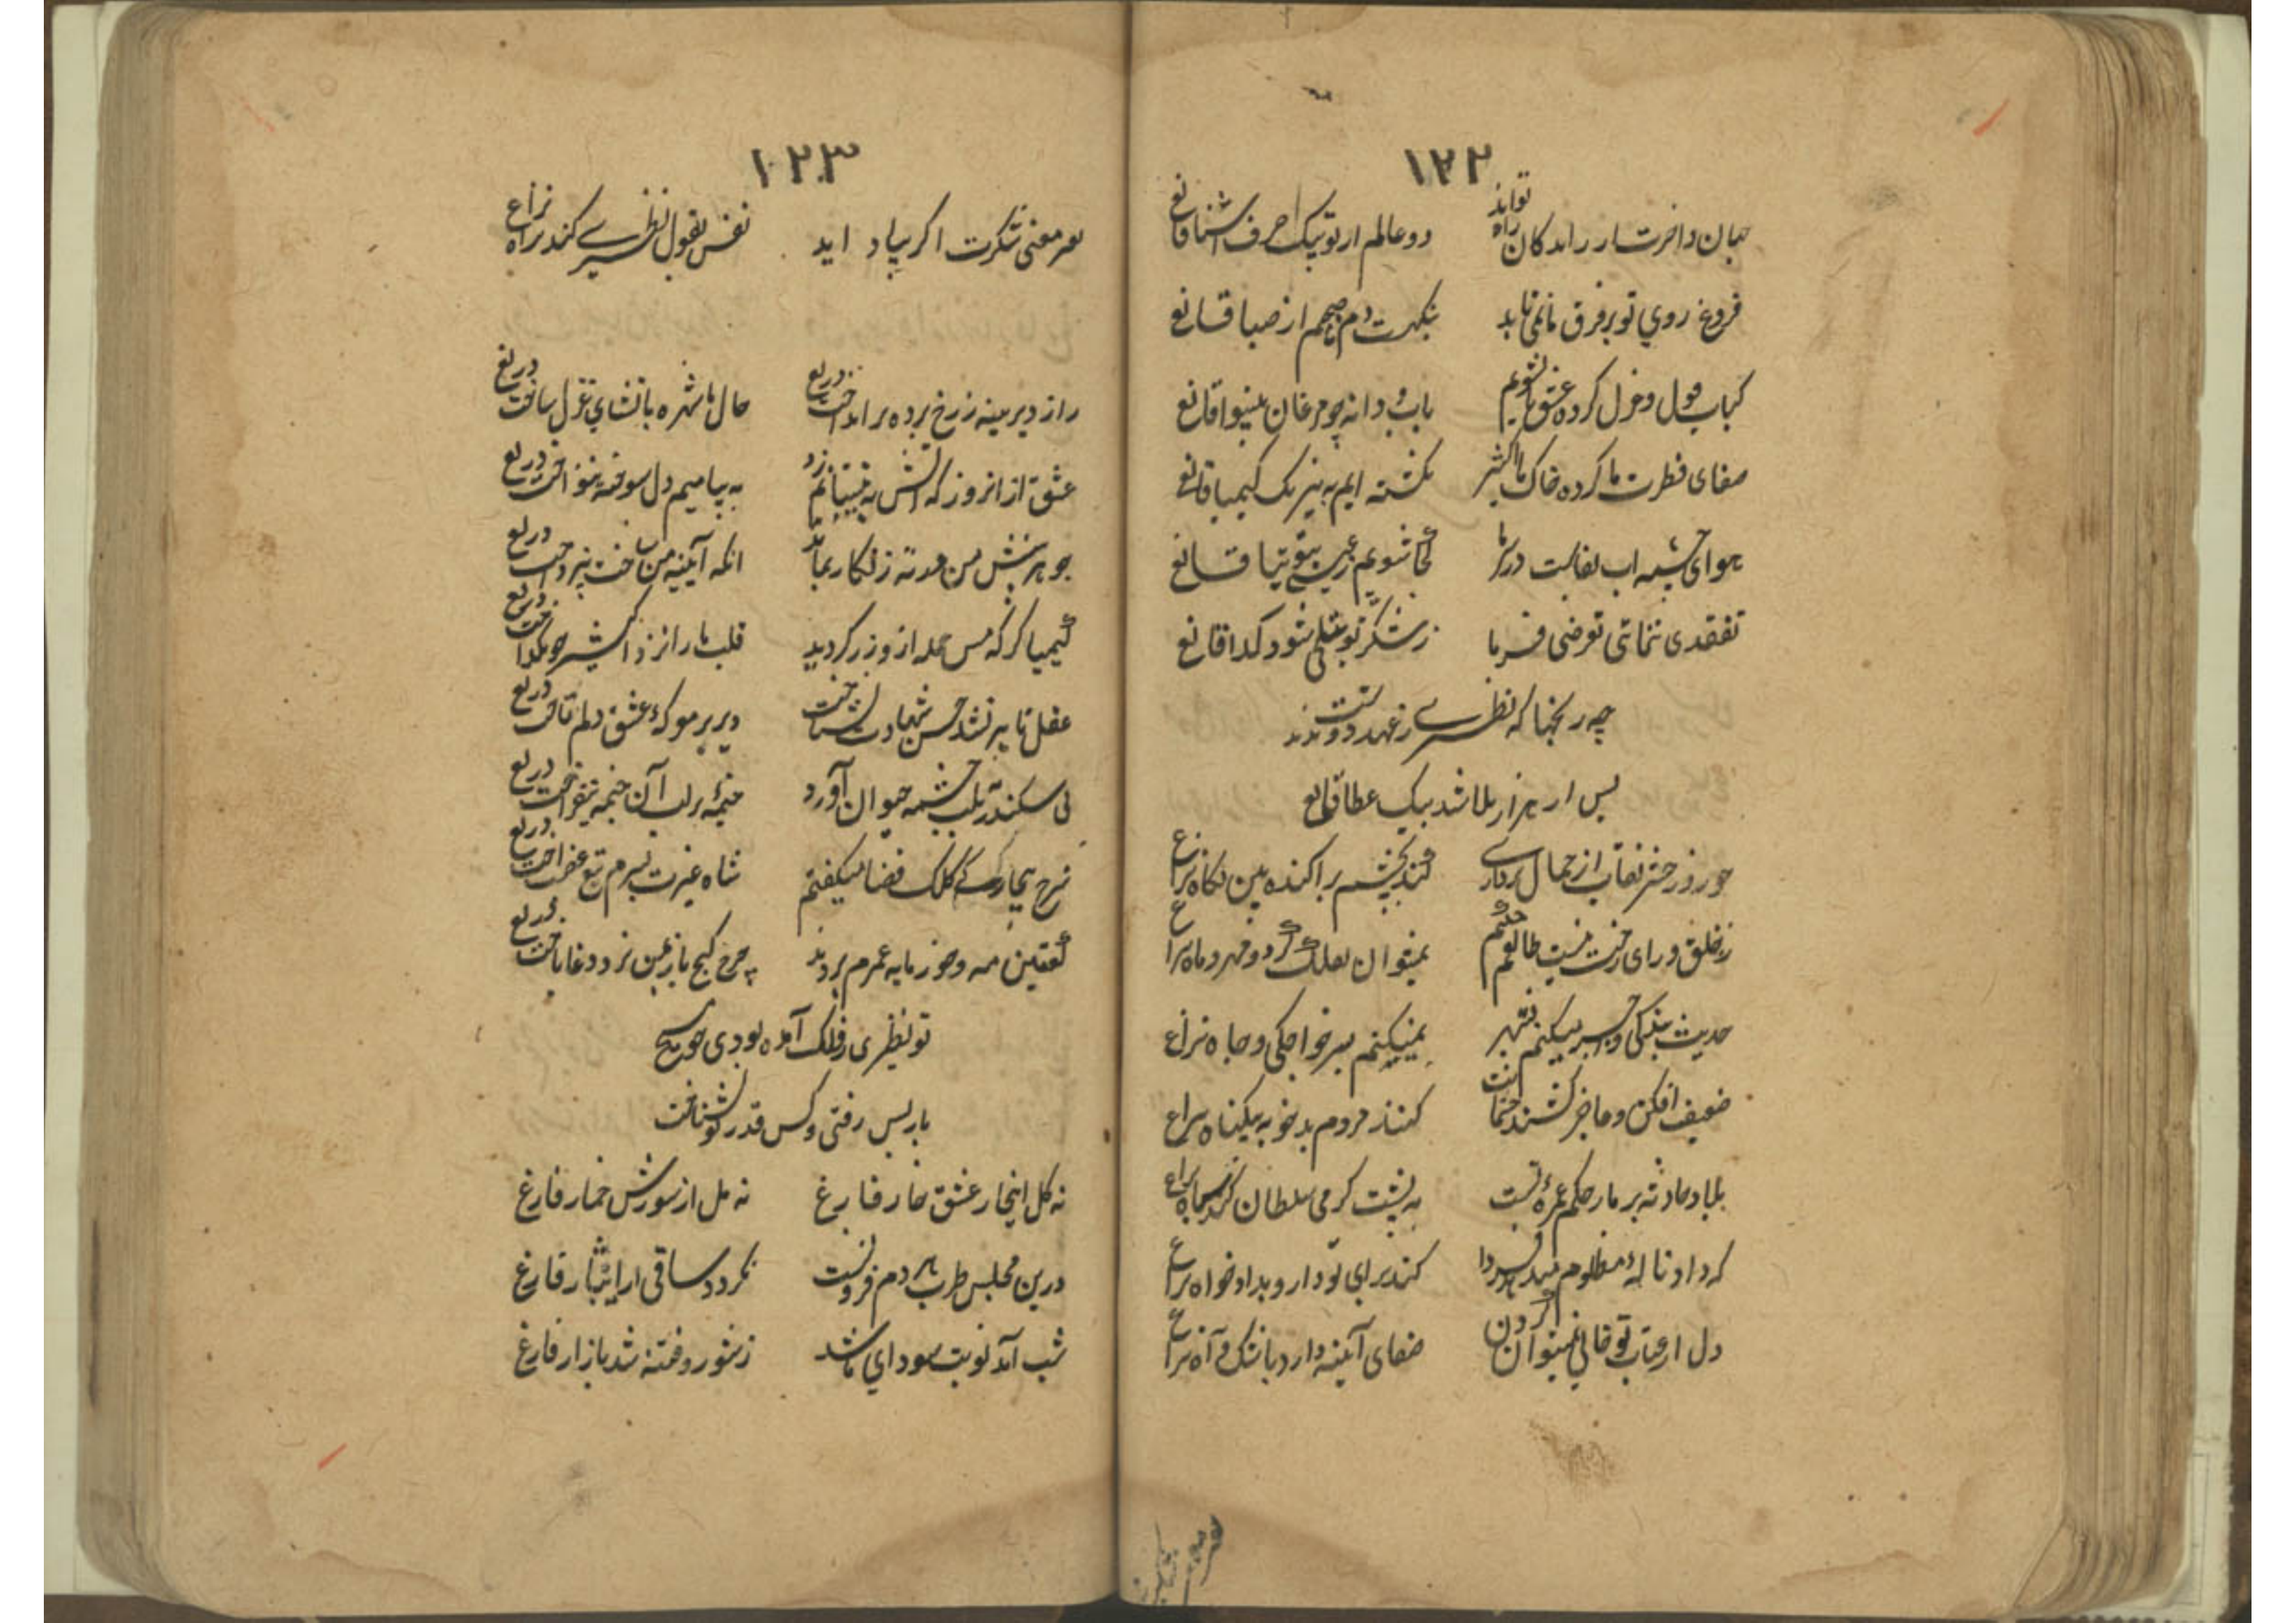 ۱۲۲
دو عالم از تو بیک حرف آشنا قانع
فروغ روی تو بر فرق ما نمی تابد بنکهت دم صبحم از صبا قانع
بآب و دانه چو مرغان بینوا قانع
صفای فطرت ما کرده خاک را اکسیر نکشته ایم به نیرنک کیمیا قانع
هوای چشمه آب بقاست در سر ما کجا شویم
تفقدی ننمائی تعرضی فرما ز شکر تو بتسلی شود کدا قانع
چه رنجها که نظیری ز عهد دوستت دید
پس از هزار بلا شد بیک عطا قانع
چو روز حشر نقاب از جمال برداری کند بچشم پراکنده بین نکاه نزاع
ز خلق ورای نیست طالعم نمیتوان بفلک کرد و مهر و ماه نزاع
حدیث بندکی و میکنم بشهر نمیکنم بسر خواجکی و جاه نزاع
ضعیف افکن و عاجز کشند کنند مردم بدخو به بیکناه نزاع
بلا و حادثه بر ما بحکم غمزه تست به پشت کرمی سلطان کند سپاه نزاع
که داد ناله مظلوم میدهد فردا کند برای تو دار و بداد خواه نزاع
دل از عتاب تو خالی نمیتوان کردن صفای آینه دارد باشک و آه نزاع
۱۲۳
بهر معنی شکرت اکر بیاد آید نفس بقول نظیری کند براه نزاع
راز دیرینه ز رخ پرده برانداخت دریغ حال ما شهره بانشای غزل ساخت دریغ
عشق از انروز که آتش به نیستانم زد به پیامیم دل سوخته ننواخت دریغ
جوهر بینش من در ته زنکار بماند آنکه آیینه من ساخت نپرداخت دریغ
کیمیا کر که مس جمله ازو زر کردید قلب ما را نزد اکسیر چو بکداخت دریغ
عقل تا پیر نشد حسن شهادت نشناخت دیر بر موکب عشق دلم تاخت دریغ
پی سکندر بلب چشمه حیوان آورد خیمه بر لب آن چشمه نیفراخت دریغ
شرح بیمارکی کلک قضا میکفتم شاه غیرت بسرم تیغ غضب آخت دریغ
کعبتین مه و خور مایه عمرم بردند چرخ کج باز بمن نرد دغا باخت دریغ
تو نظیری ز فلک آمده بودی چو مسیح
باز پس رفتی و کس قدر تو نشناخت
نه کل اینجا ز عشق خار فارغ نه مل از سوزش خمار فارغ
درین مجلس طرب هر دم فزونست نکردد ساقی از ایثار فارغ
شب آمد نوبت سودای ما شد ز شور و فتنه شد بازار فارغ